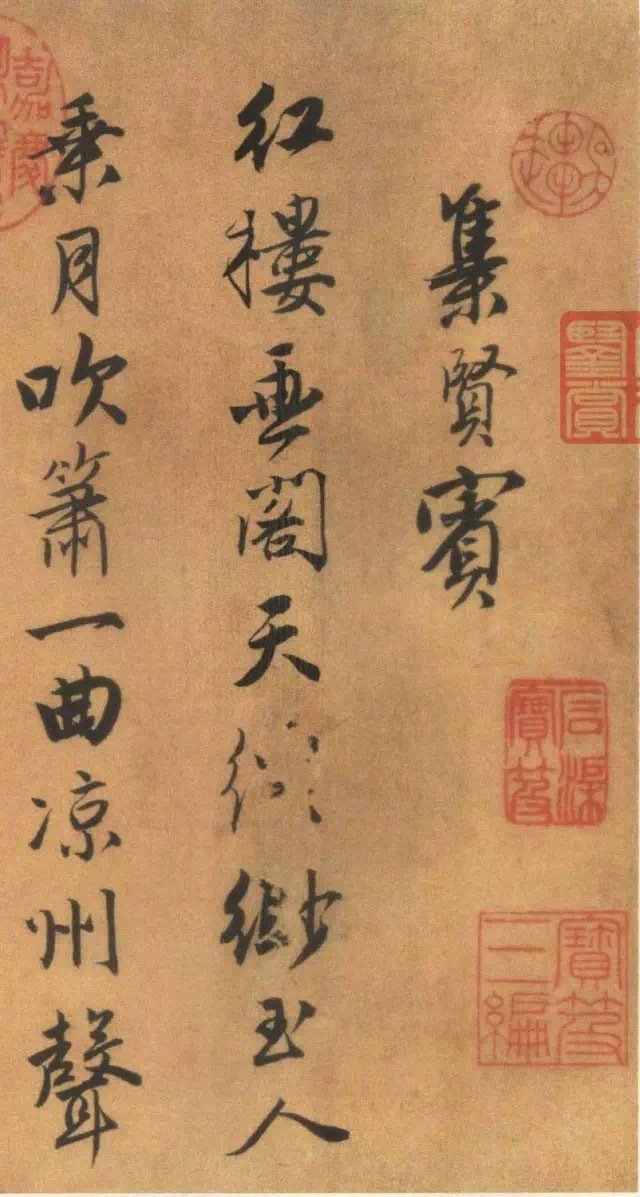 集賢賓
紅樓畫閣天緲玉人
乘月吹簫一曲凉州聲
石渠寶笈
寶笈三編
嘉慶